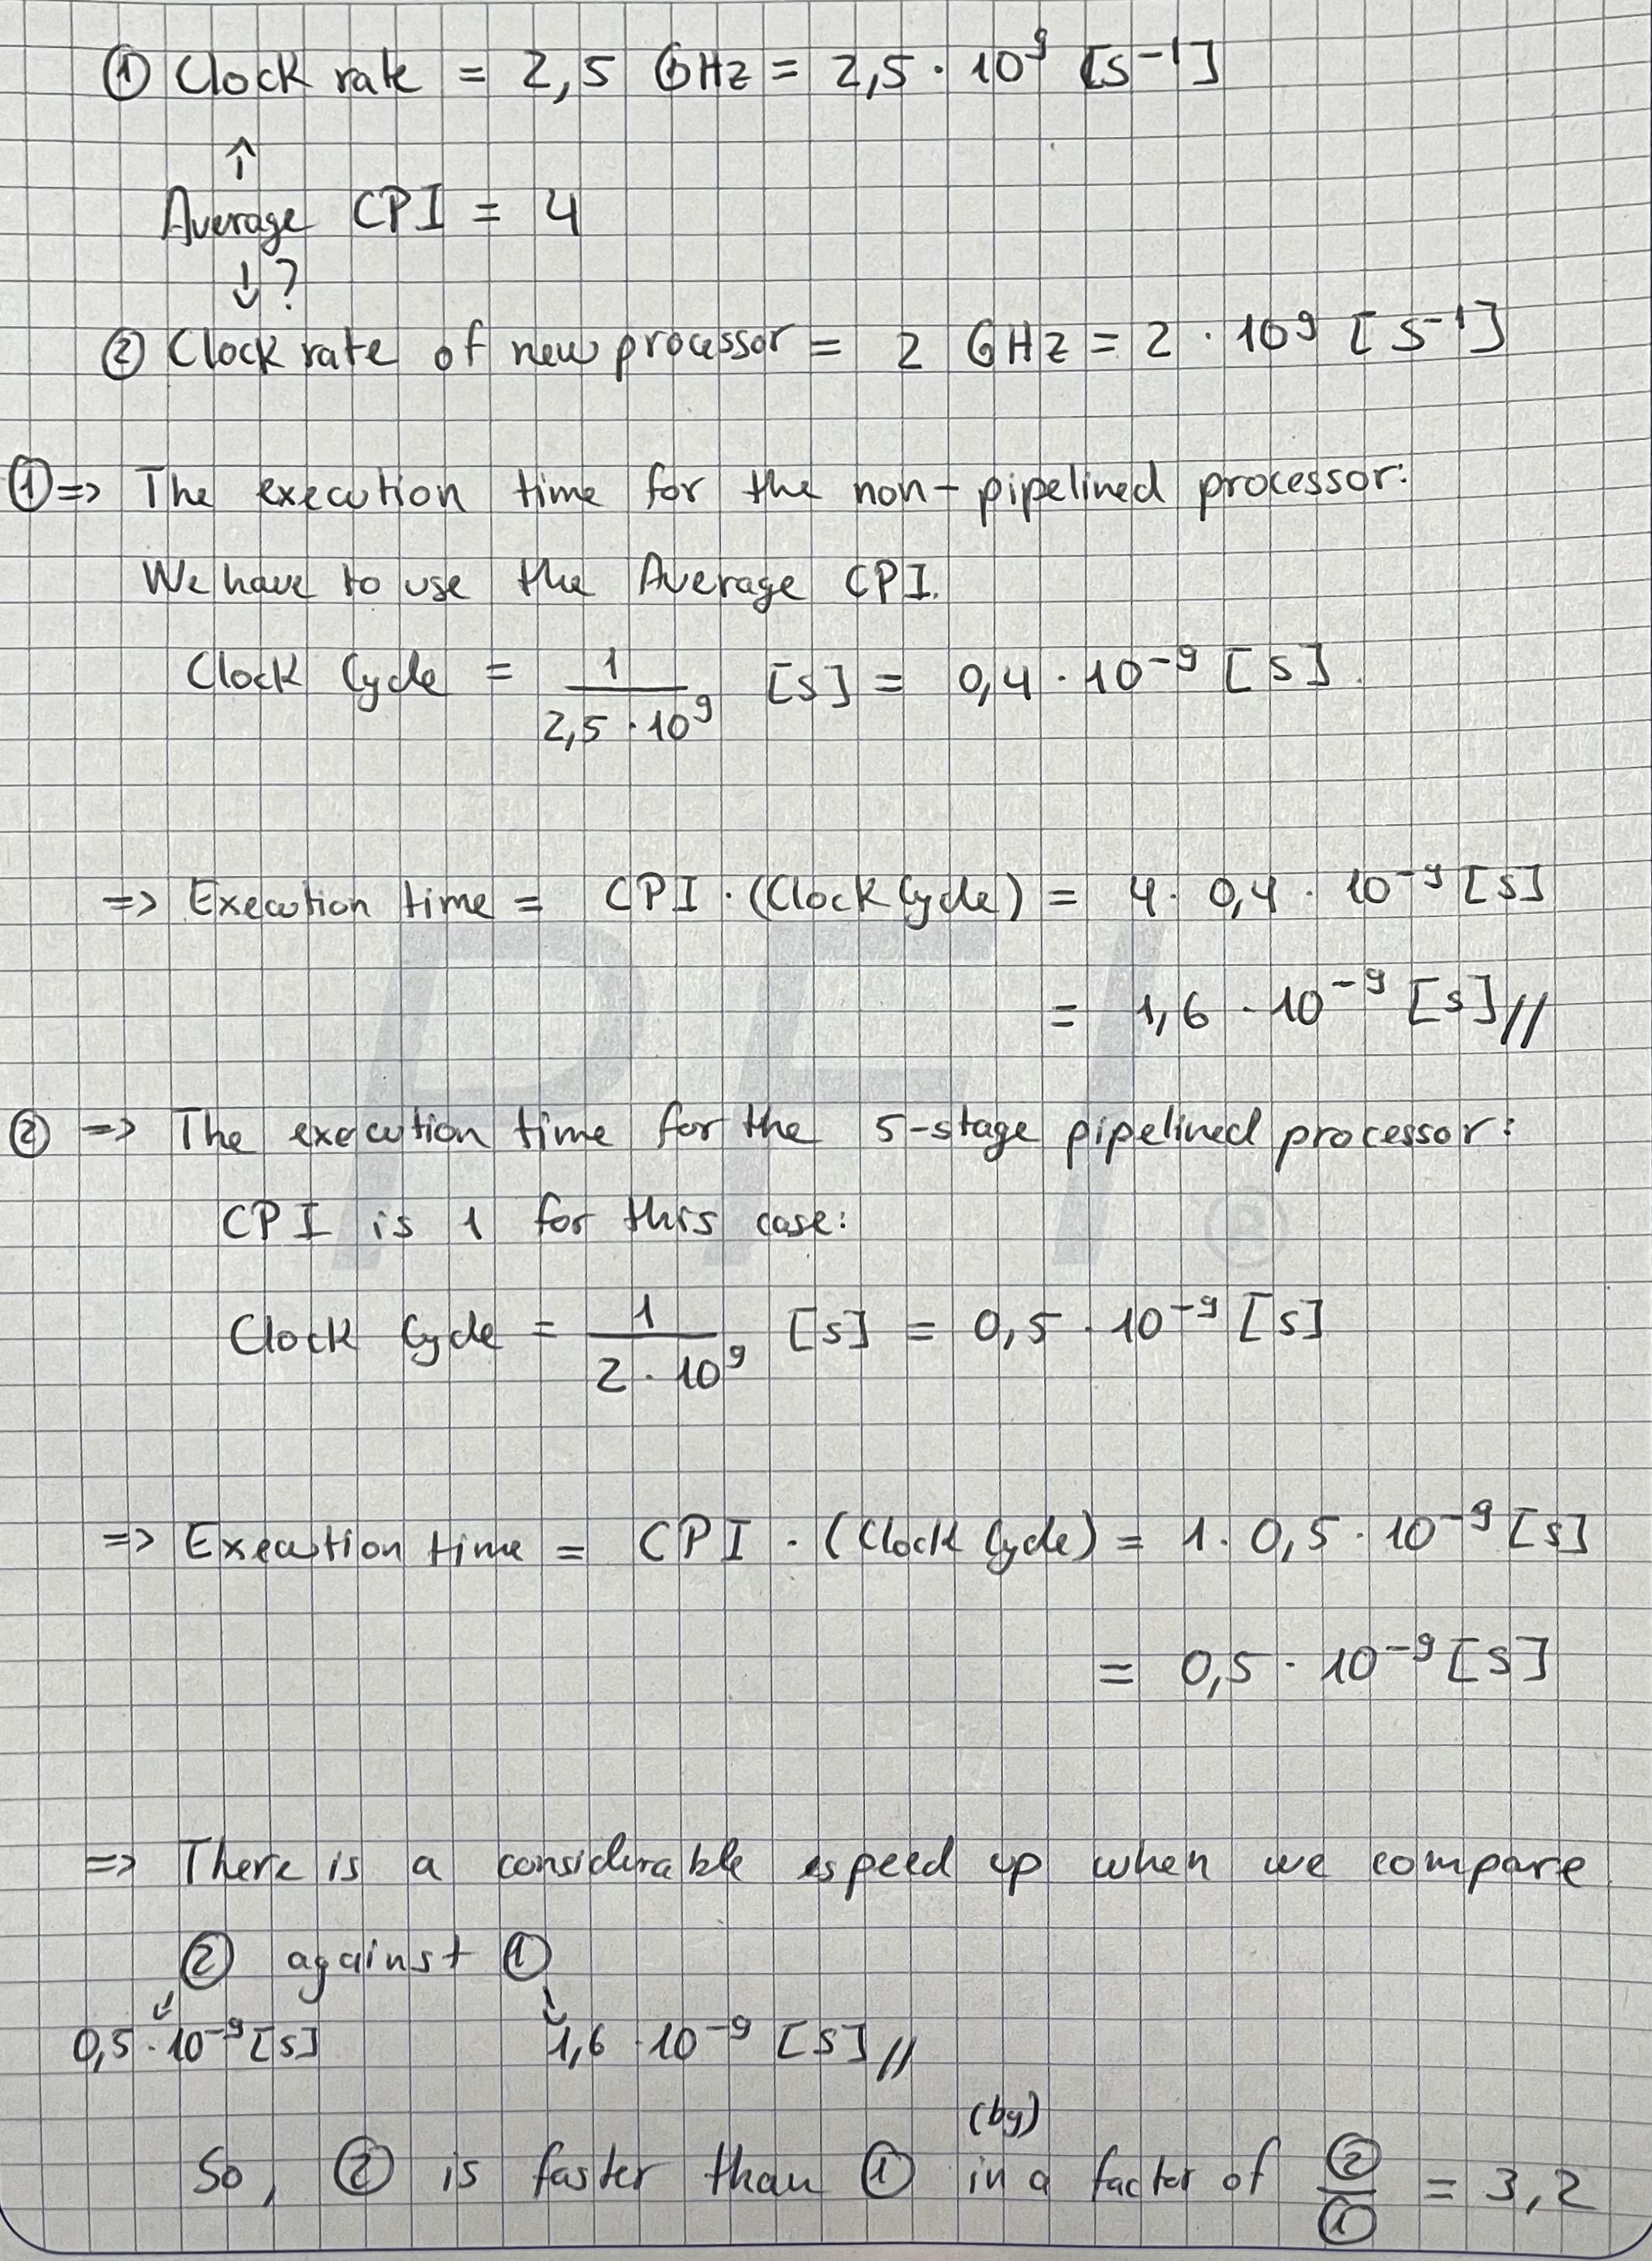 ① Clock rate = 2,5 GHz = 2,5 · 10⁹ [s⁻¹]
↑
Average CPI = 4
↓?
② Clock rate of new processor = 2 GHz = 2 · 10⁹ [s⁻¹]
① => The execution time for the non-pipelined processor:
We have to use the Average CPI.
Clock Cycle = 1 / 2,5 · 10⁹ [s] = 0,4 · 10⁻⁹ [s].
=> Execution time = CPI · (Clock Cycle) = 4 · 0,4 · 10⁻⁹ [s]
= 1,6 · 10⁻⁹ [s] //
② => The execution time for the 5-stage pipelined processor:
CPI is 1 for this case:
Clock Cycle = 1 / 2 · 10⁹ [s] = 0,5 · 10⁻⁹ [s]
=> Execution time = CPI · (Clock Cycle) = 1 · 0,5 · 10⁻⁹ [s]
= 0,5 · 10⁻⁹ [s]
=> There is a considerable speed up when we compare
② against ①
0,5 · 10⁻⁹ [s] 1,6 · 10⁻⁹ [s] //
(by)
So, ② is faster than ① in a factor of ② / ① = 3,2